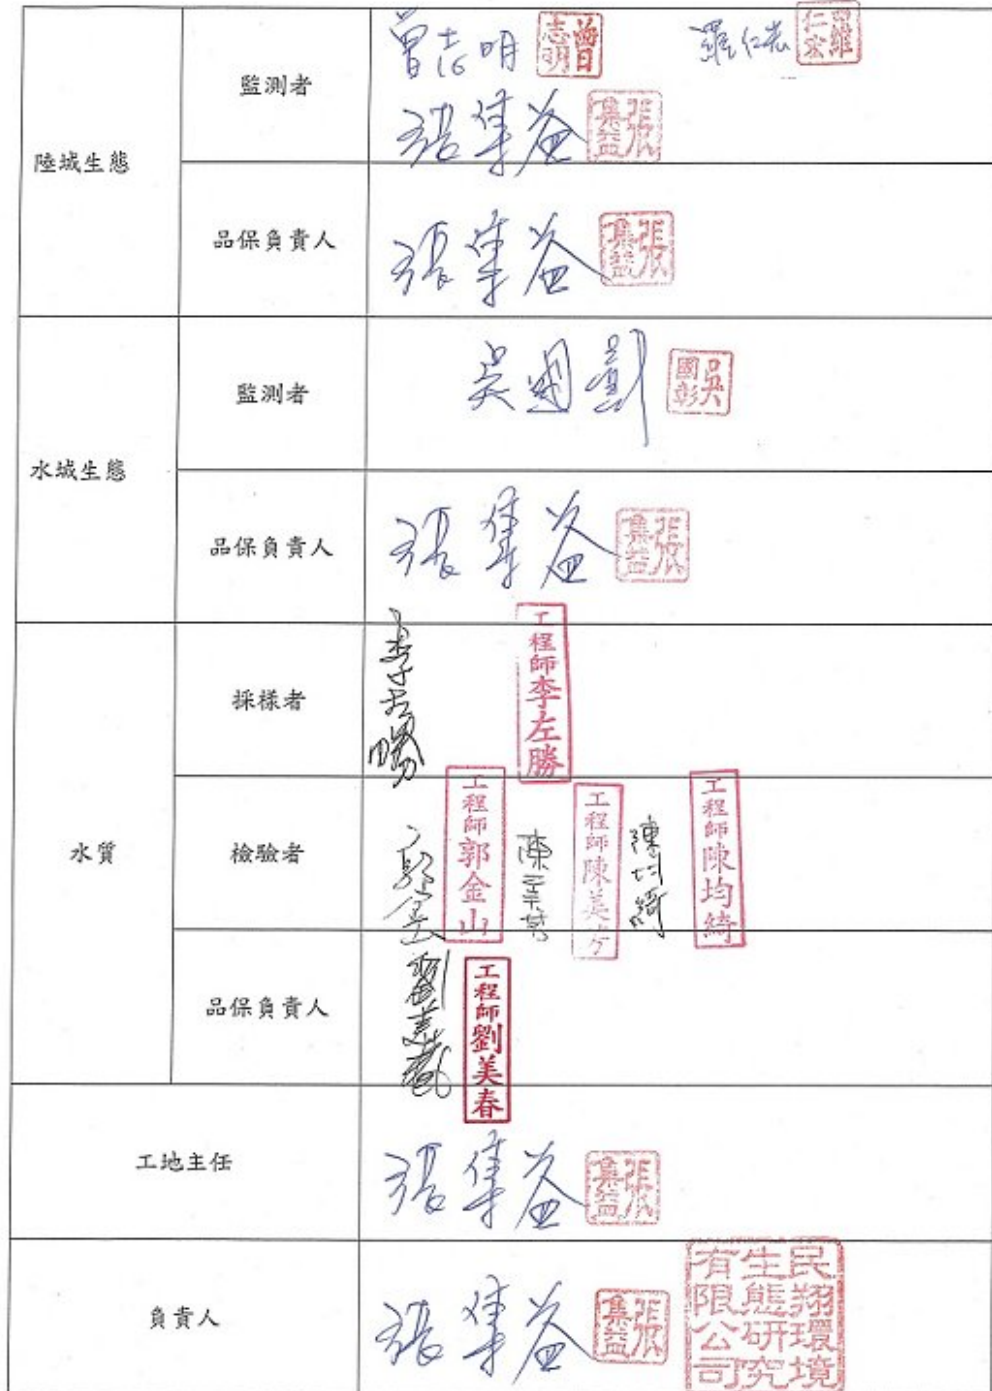 陸域生態
監測者
曾志明 曾志明 羅仁宏 羅仁宏
張集益 張集益
品保負責人
張集益 張集益
水域生態
監測者
吳國彰 吳國彰
品保負責人
張集益 張集益
水質
採樣者
李左勝 工程師李左勝
檢驗者
郭金山 工程師郭金山 工程師陳美 陳均綺 工程師陳均綺
品保負責人
劉美春 工程師劉美春
工地主任
張集益 張集益
負責人
張集益 張集益 民翔環境生態研究有限公司